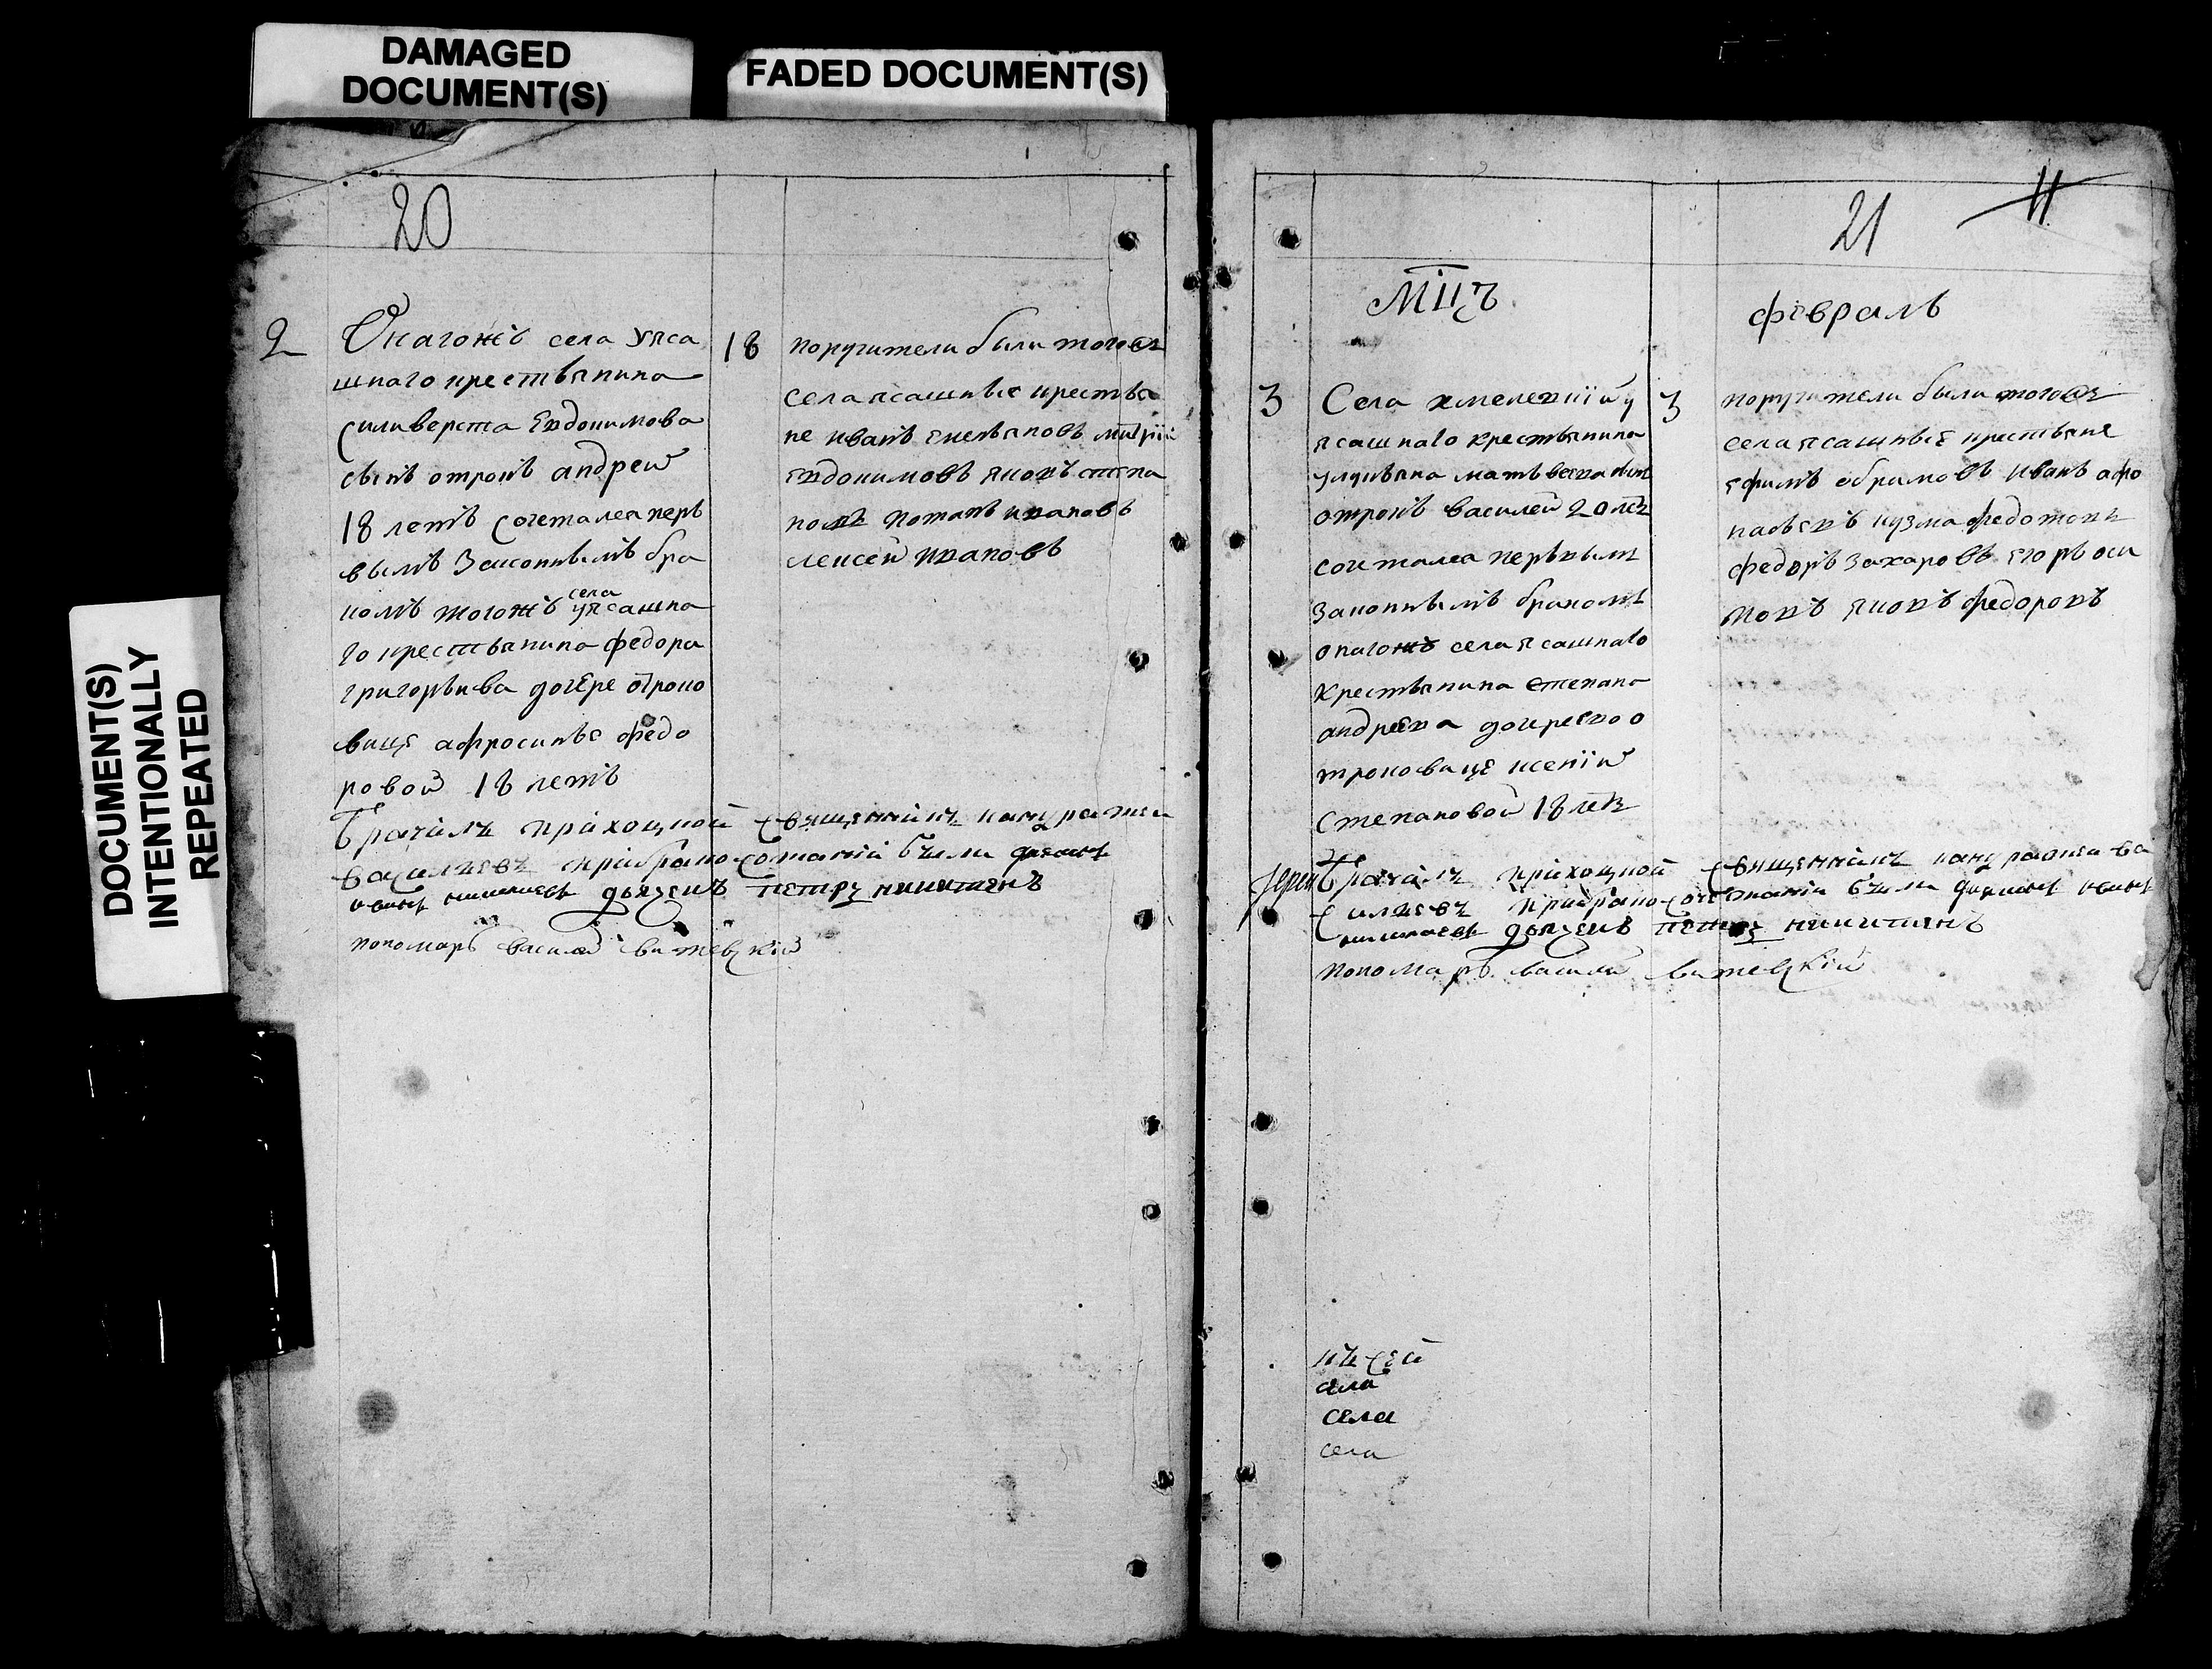 DAMAGED
DOCUMENT(S)
FADED DOCUMENT(S)
DOCUMENT(S)
INTENTIONALLY
REPEATED
20
2
Онагожъ села уяса
шнаго крестьянина
силиверста Евдокимова
сынъ отрокъ андреи
18 летъ сочеталса перъ
вымъ Законнымъ бра
комъ тогожъ села уясашна
го крестьянина федора
григорьива дочере отроко
вице афросинье федо
ровой 18 летъ
18
поручители были тогожъ
села ясашные крестья
не иванъ емельяновъ
Евдокимовъ яковъ степа
новъ потапъ ивановъ
лексей ивановъ
Врачалъ приходной священникъ кандратеи
василиевъ при брако сочтаний были
дьячекъ петръ никитинъ
пономарь василей витевский
21
11
Мцъ
февраль
3
Села хмелевкий у
ясашнаго крестьянина
улуяна матьвеева сынъ
отрокъ василей 20 летъ
сочеталса первымъ
законнымъ бракомъ
онагожъ села ясашнаго
крестьянина степана
андреева дочерею о
троковице ксении
степановой 18 летъ
3
поручители были тогожъ
села ясашные крестьяне
ефимъ ефимовъ иванъ афо
насьевъ кузма федотовъ
федоръ захаровъ егоръ оси
повъ яковъ федоровъ
Врачалъ приходной священникъ кандратеи ва
силиевъ при брако сочетании были
дьячекъ петръ никитинъ
пономарь василей витевский
села
села
села